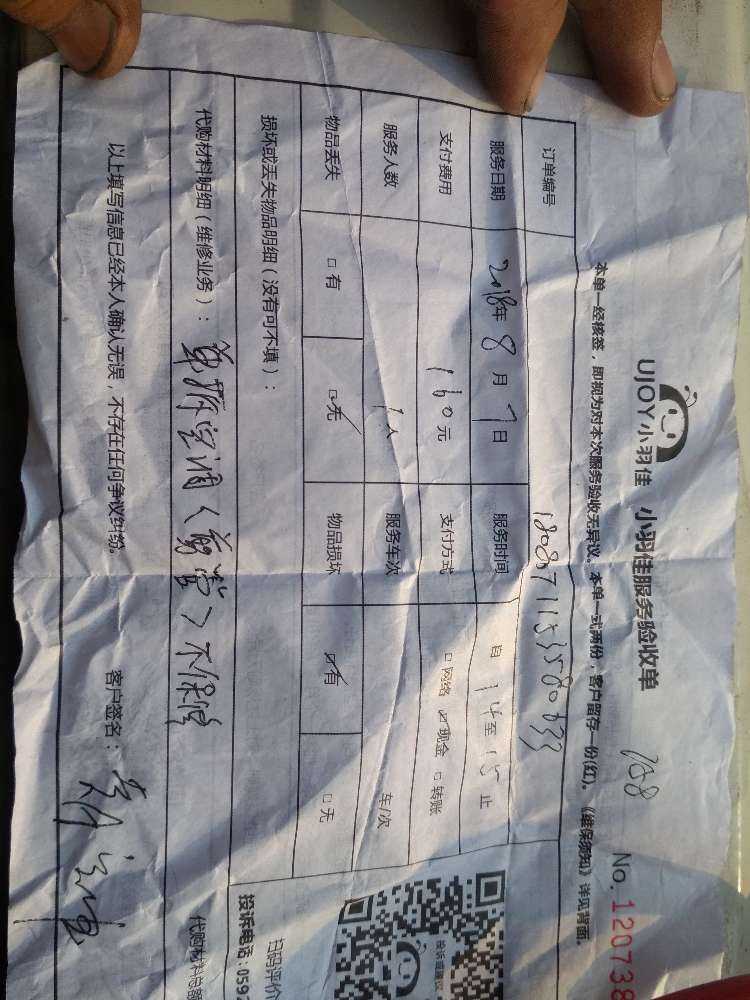 UJOY小羽佳 小羽佳服务验收单
No.120738
本单一经核签，即视为对本次服务验收无异议。本单一式两份，客户留存一份(红)。《维保须知》详见背面。
订单编号
服务日期 2018年 8 月 7 日 服务时间 自 14 至 15 止
支付费用 160 元 支付方式 □网络 ☑现金 □转账
服务人数 1 人 服务车次 车/次
物品丢失 □有 ☑无 物品损坏 ☑有 □无
损坏或丢失物品明细（没有可不填）：
投诉或建议
扫码评价
投诉电话：059
代购材料明细（维修业务）： 单拆空调 不保修
代购材料总额
以上填写信息已经本人确认无误，不存在任何争议纠纷。 客户签名：